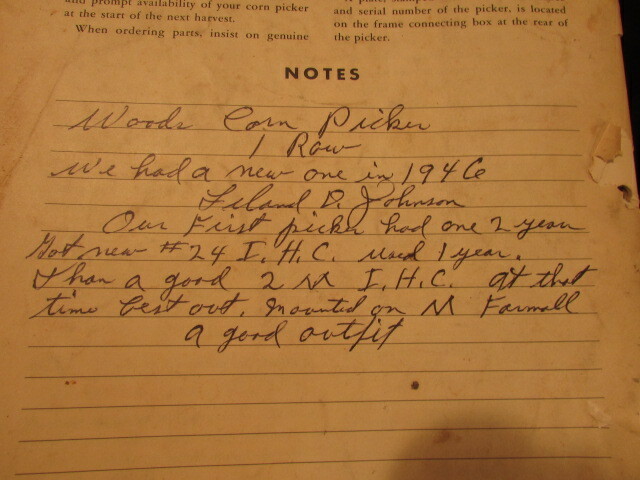 and prompt availability of your corn picker
at the start of the next harvest.
When ordering parts, insist on genuine
and serial number of the picker, is located
on the frame connecting box at the rear of
the picker.
NOTES
Woods Corn Picker
1 Row
We had a new one in 1946
Leland D. Johnson
Our First picker had one 2 year
Got new #24 I.H.C. used 1 year.
Than a good 2 M I.H.C. at that
time best out. mounted on M Farmall
a good outfit